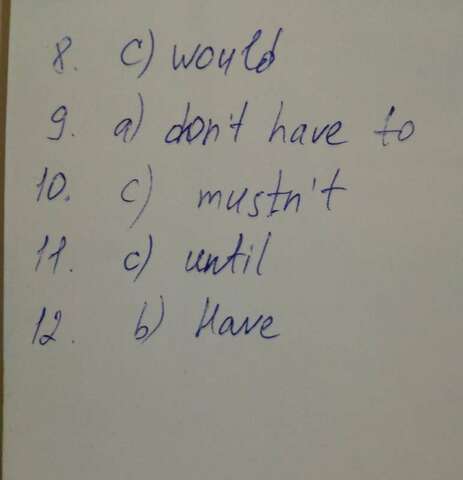 8. c) would
9. a) don't have to
10. c) mustn't
11. c) until
12. b) Have